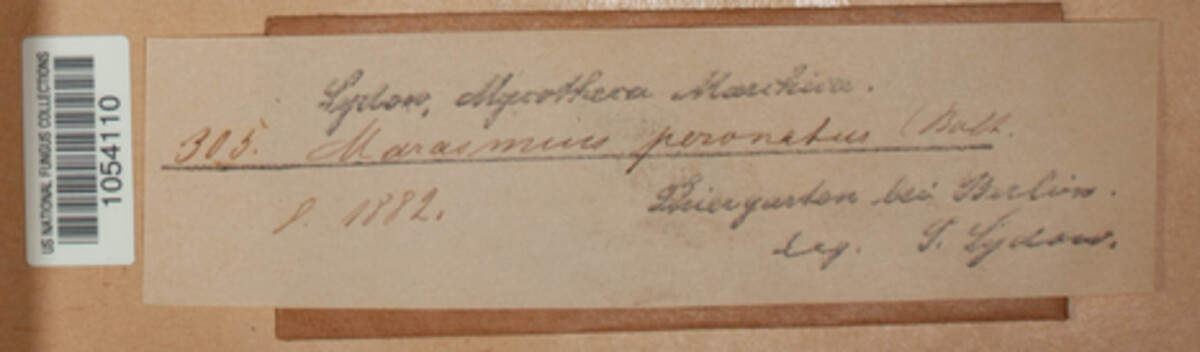 US NATIONAL FUNGUS COLLECTIONS
1054110
Sydow, Mycotheca Marchica.
305. Marasmius peronatus (Bolt.
8. 1882.
Thiergarten bei Berlin.
leg. P. Sydow.